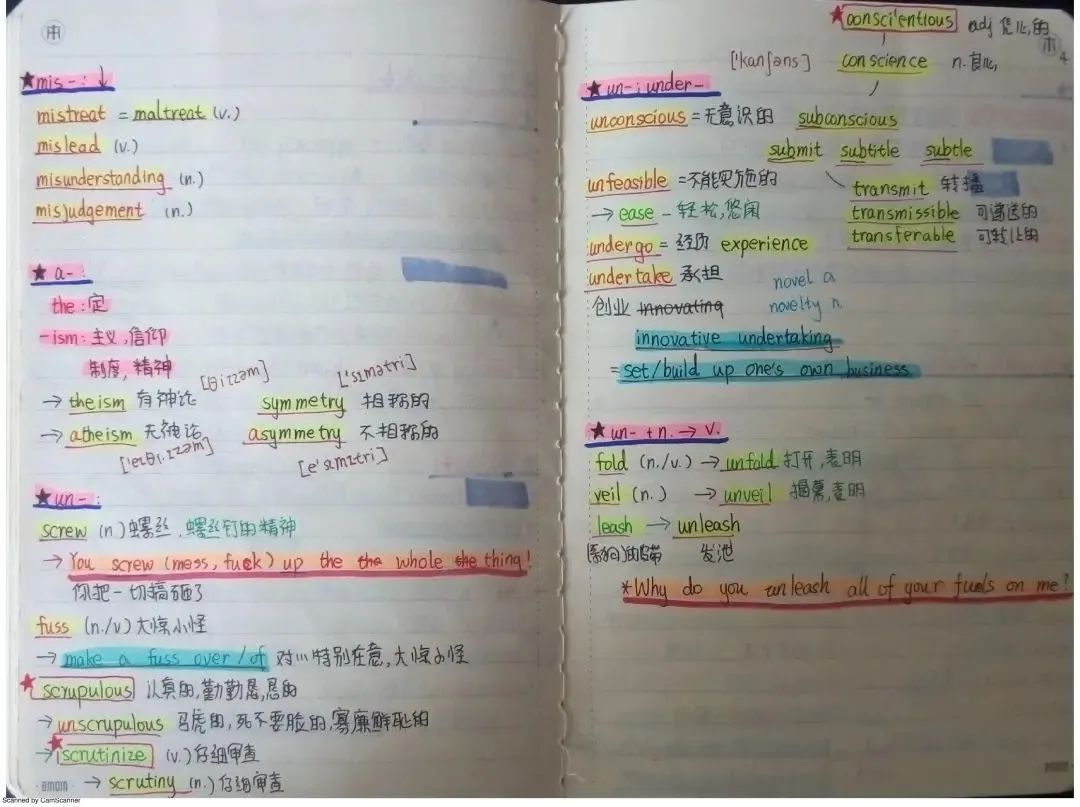 本
★mis-: ↓
mistreat = maltreat (v.)
mislead (v.)
misunderstanding (n.)
misjudgement (n.)
★ a-:
the: 定
-ism: 主义,信仰
制度,精神
[θizzəm] ['sɪmətri]
→ theism 有神论 symmetry 相称的
→ atheism 无神论 asymmetry 不相称的
['eɪθɪ.ɪzəm] [e'sɪmɪtri]
★un-:
screw (n) 螺丝,螺丝钉的精神
→ You screw (mess, fuck) up the the whole the thing!
你把一切搞砸了
fuss (n./v) 大惊小怪
→ make a fuss over/of 对…特别在意,大惊小怪
★scrupulous 认真的,勤勤恳恳的
→ unscrupulous 马虎的,死不要脸的,寡廉鲜耻的
→★scrutinize (v.) 仔细审查
→ scrutiny (n.) 仔细审查
★conscientious adj 凭良心的
本
4
['kanʃəns] conscience n. 良心
★un-; under-
unconscious = 无意识的 subconscious
submit subtitle subtle
unfeasible = 不能实施的 transmit 转播
→ ease - 轻松,悠闲 transmissible 可传送的
undergo = 经历 experience transferable 可转让的
undertake 承担 novel a
创业 innovating novelty n.
innovative undertaking
= set/build up one's own business
★un- + n. → v.
fold (n./v.) → unfold 打开,表明
veil (n.) → unveil 揭幕,表明
leash → unleash
发泄
*Why do you unleash all of your fuels on me?
Scanned by CamScanner